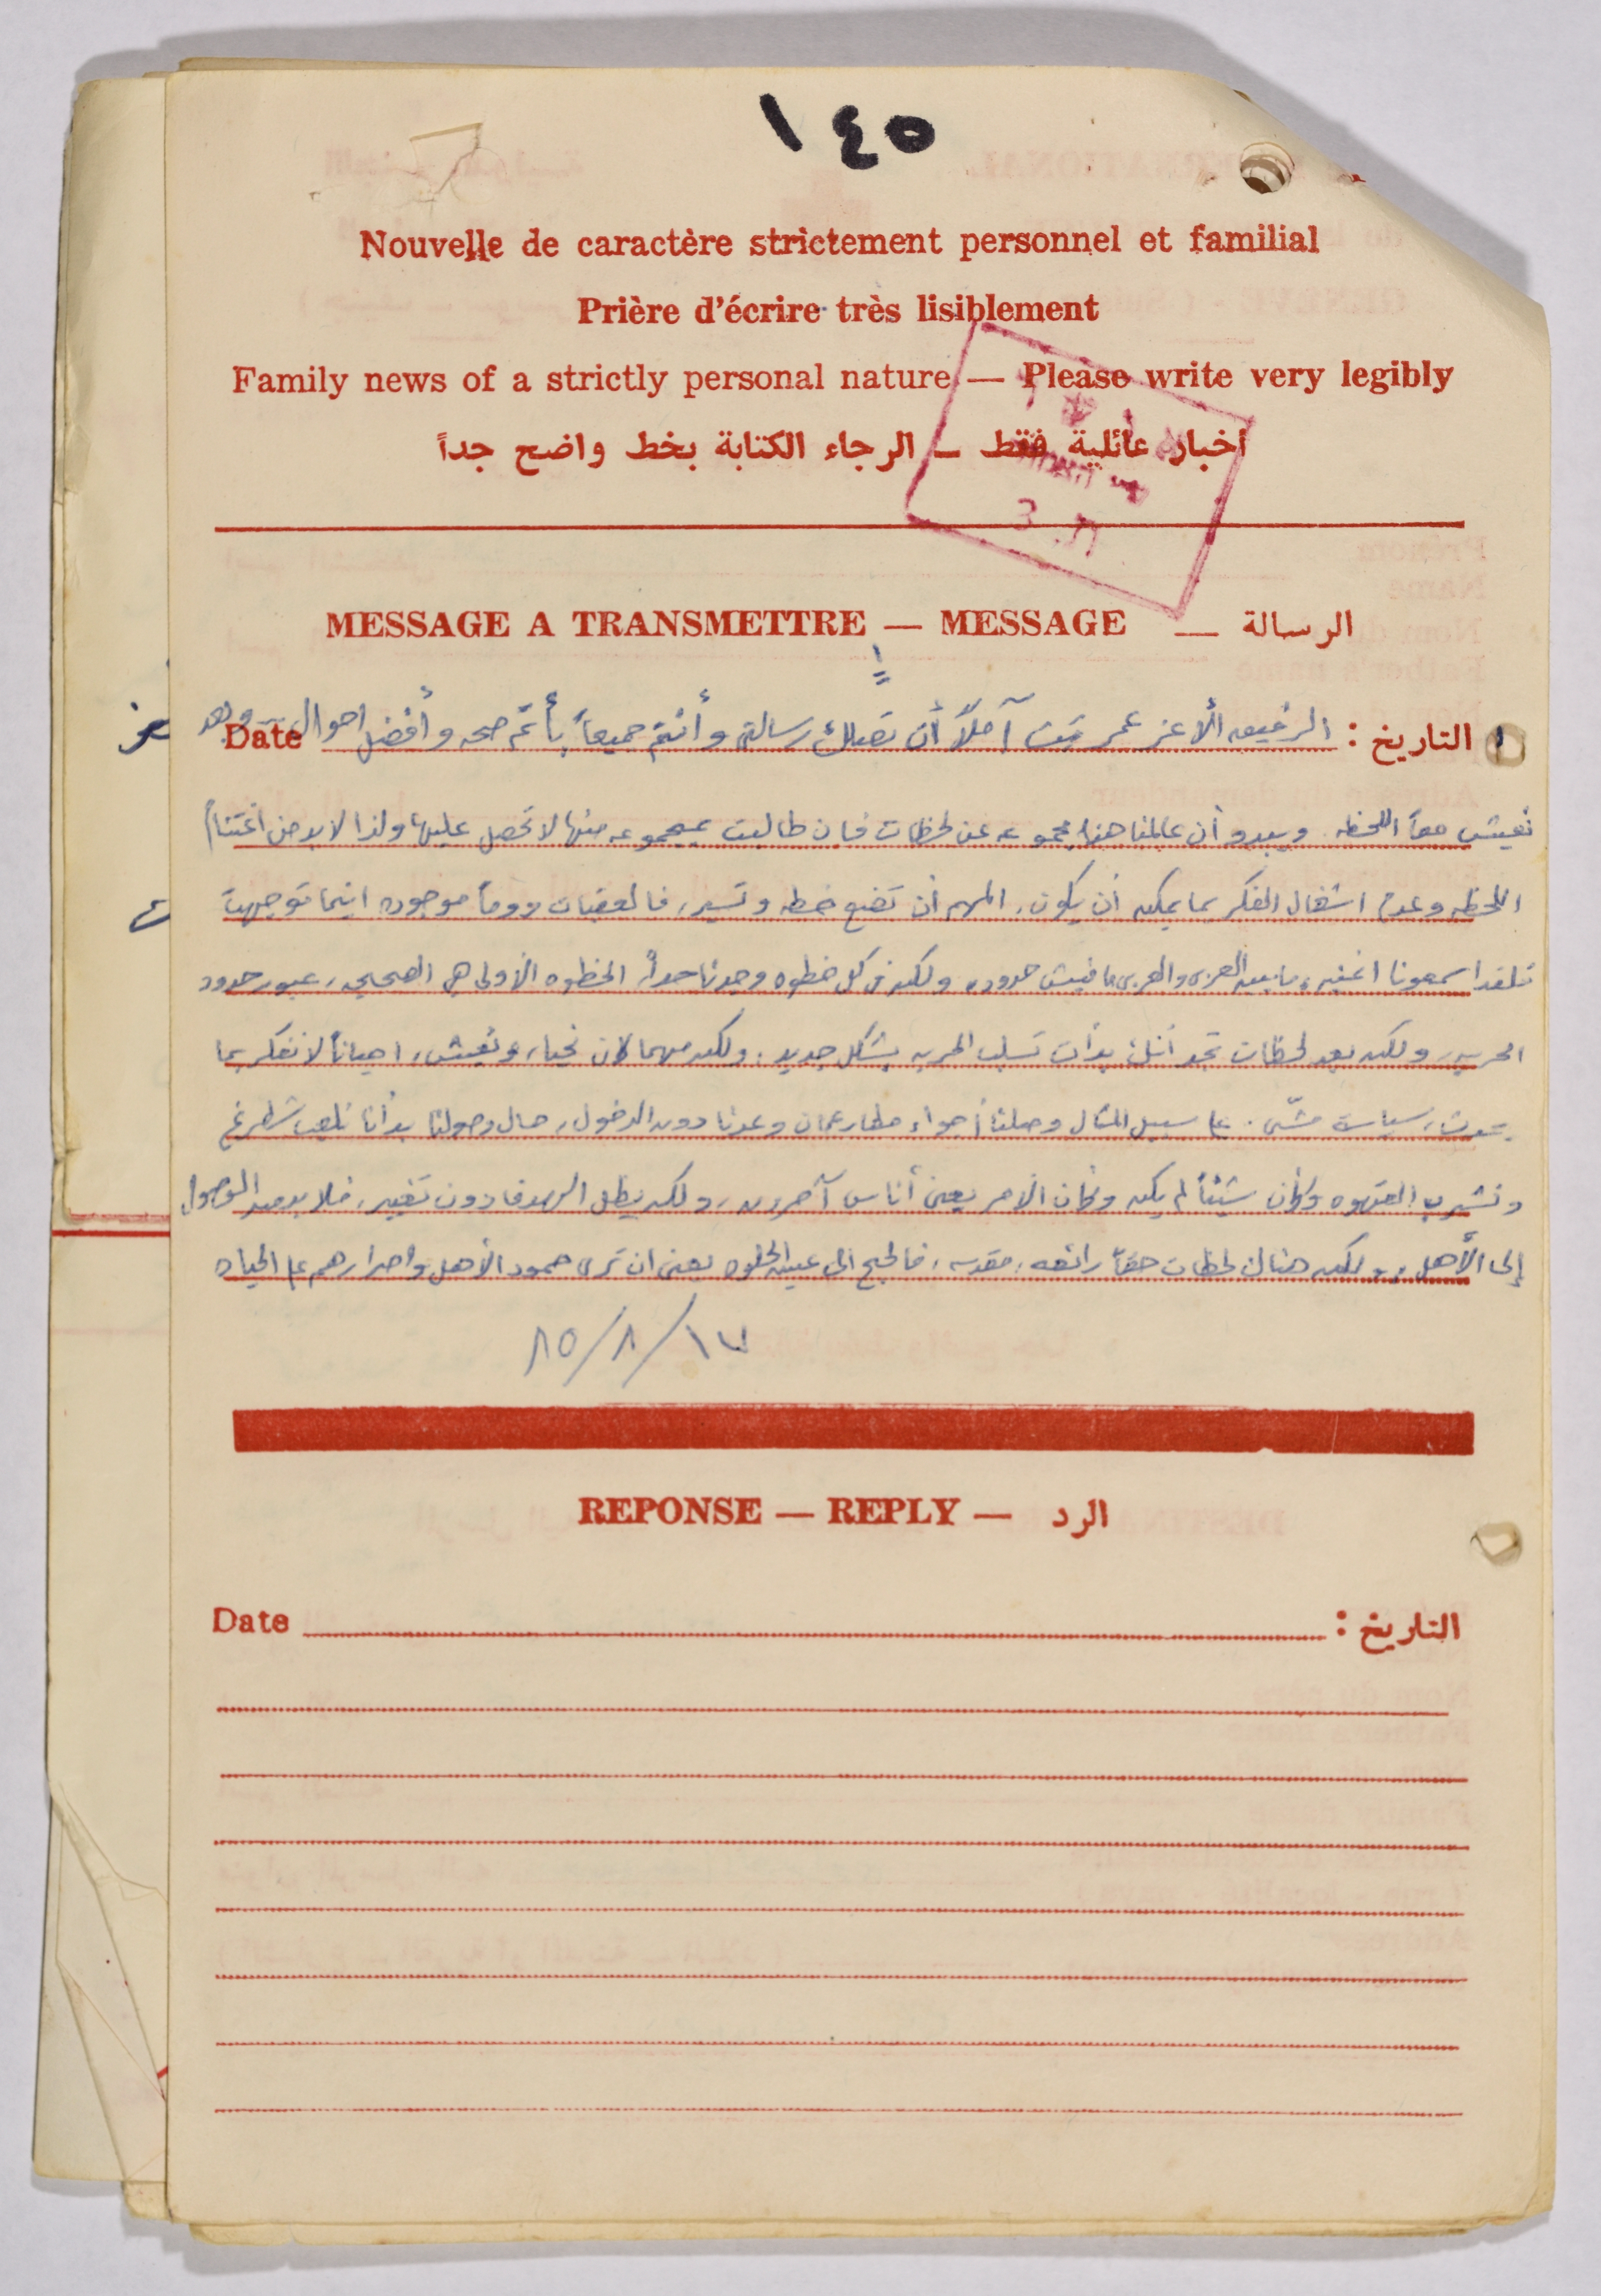 ١٤٥
Nouvelle de caractère strictement personnel et familial
Prière d'écrire très lisiblement
Family news of a strictly personal nature — Please write very legibly
أخبار عائلية فقط — الرجاء الكتابة بخط واضح جداً
MESSAGE A TRANSMETTRE — MESSAGE — الرسالة
١
التاريخ : الأعز عمر آملاً أن تصلك رسالتي وأنتم جميعاً بأتم صحه وأفضل احوال Date
نعيش معاً اللحظه. ويبدو أن عالمنا هذا مجموعه من لحظات فان طالبت بمجموعه منها لا تحصل عليها ولذا لا بد من اغتنام
اللحظه وعدم اشغال الفكر بما يمكن أن يكون. المهم أن تضع خطه وتسير، فالعقبات دوماً موجوده اينما توجهت
اسمعونا اغنيه ما بين العربي والعربي ما فيش حدود، ولكن في كل خطوه وجدنا حداً. الخطوه الأولى هي الصحيحه، عبور حدود
الحريه، ولكن بعد لحظات تجد أنك بدأت تسلب الحريه بشكل جديد. ولكن مهما كان نحيا، ونعيش، احياناً لا نفكر بما
يحدث، سياسة مشّي. على سبيل المثال وصلنا أجواء مطار عمان وعدنا دون الدخول، حال وصولنا بدأنا نلعب شطرنج
ونشرب القهوه وكأن شيئاً لم يكن وكأن الأمر يعني أناس آخرين، ولكن يظل الهدف دون تغيير، فلا بد من الوصول
إلى الأهل. ولكن هناك لحظات حقاً رائعه، مقدسه، فالحج الى عين الحلوه يعني ان ترى صمود الأهل وإصرارهم على الحياه
٨٥/٨/١٧
REPONSE — REPLY — الرد
Date التاريخ :